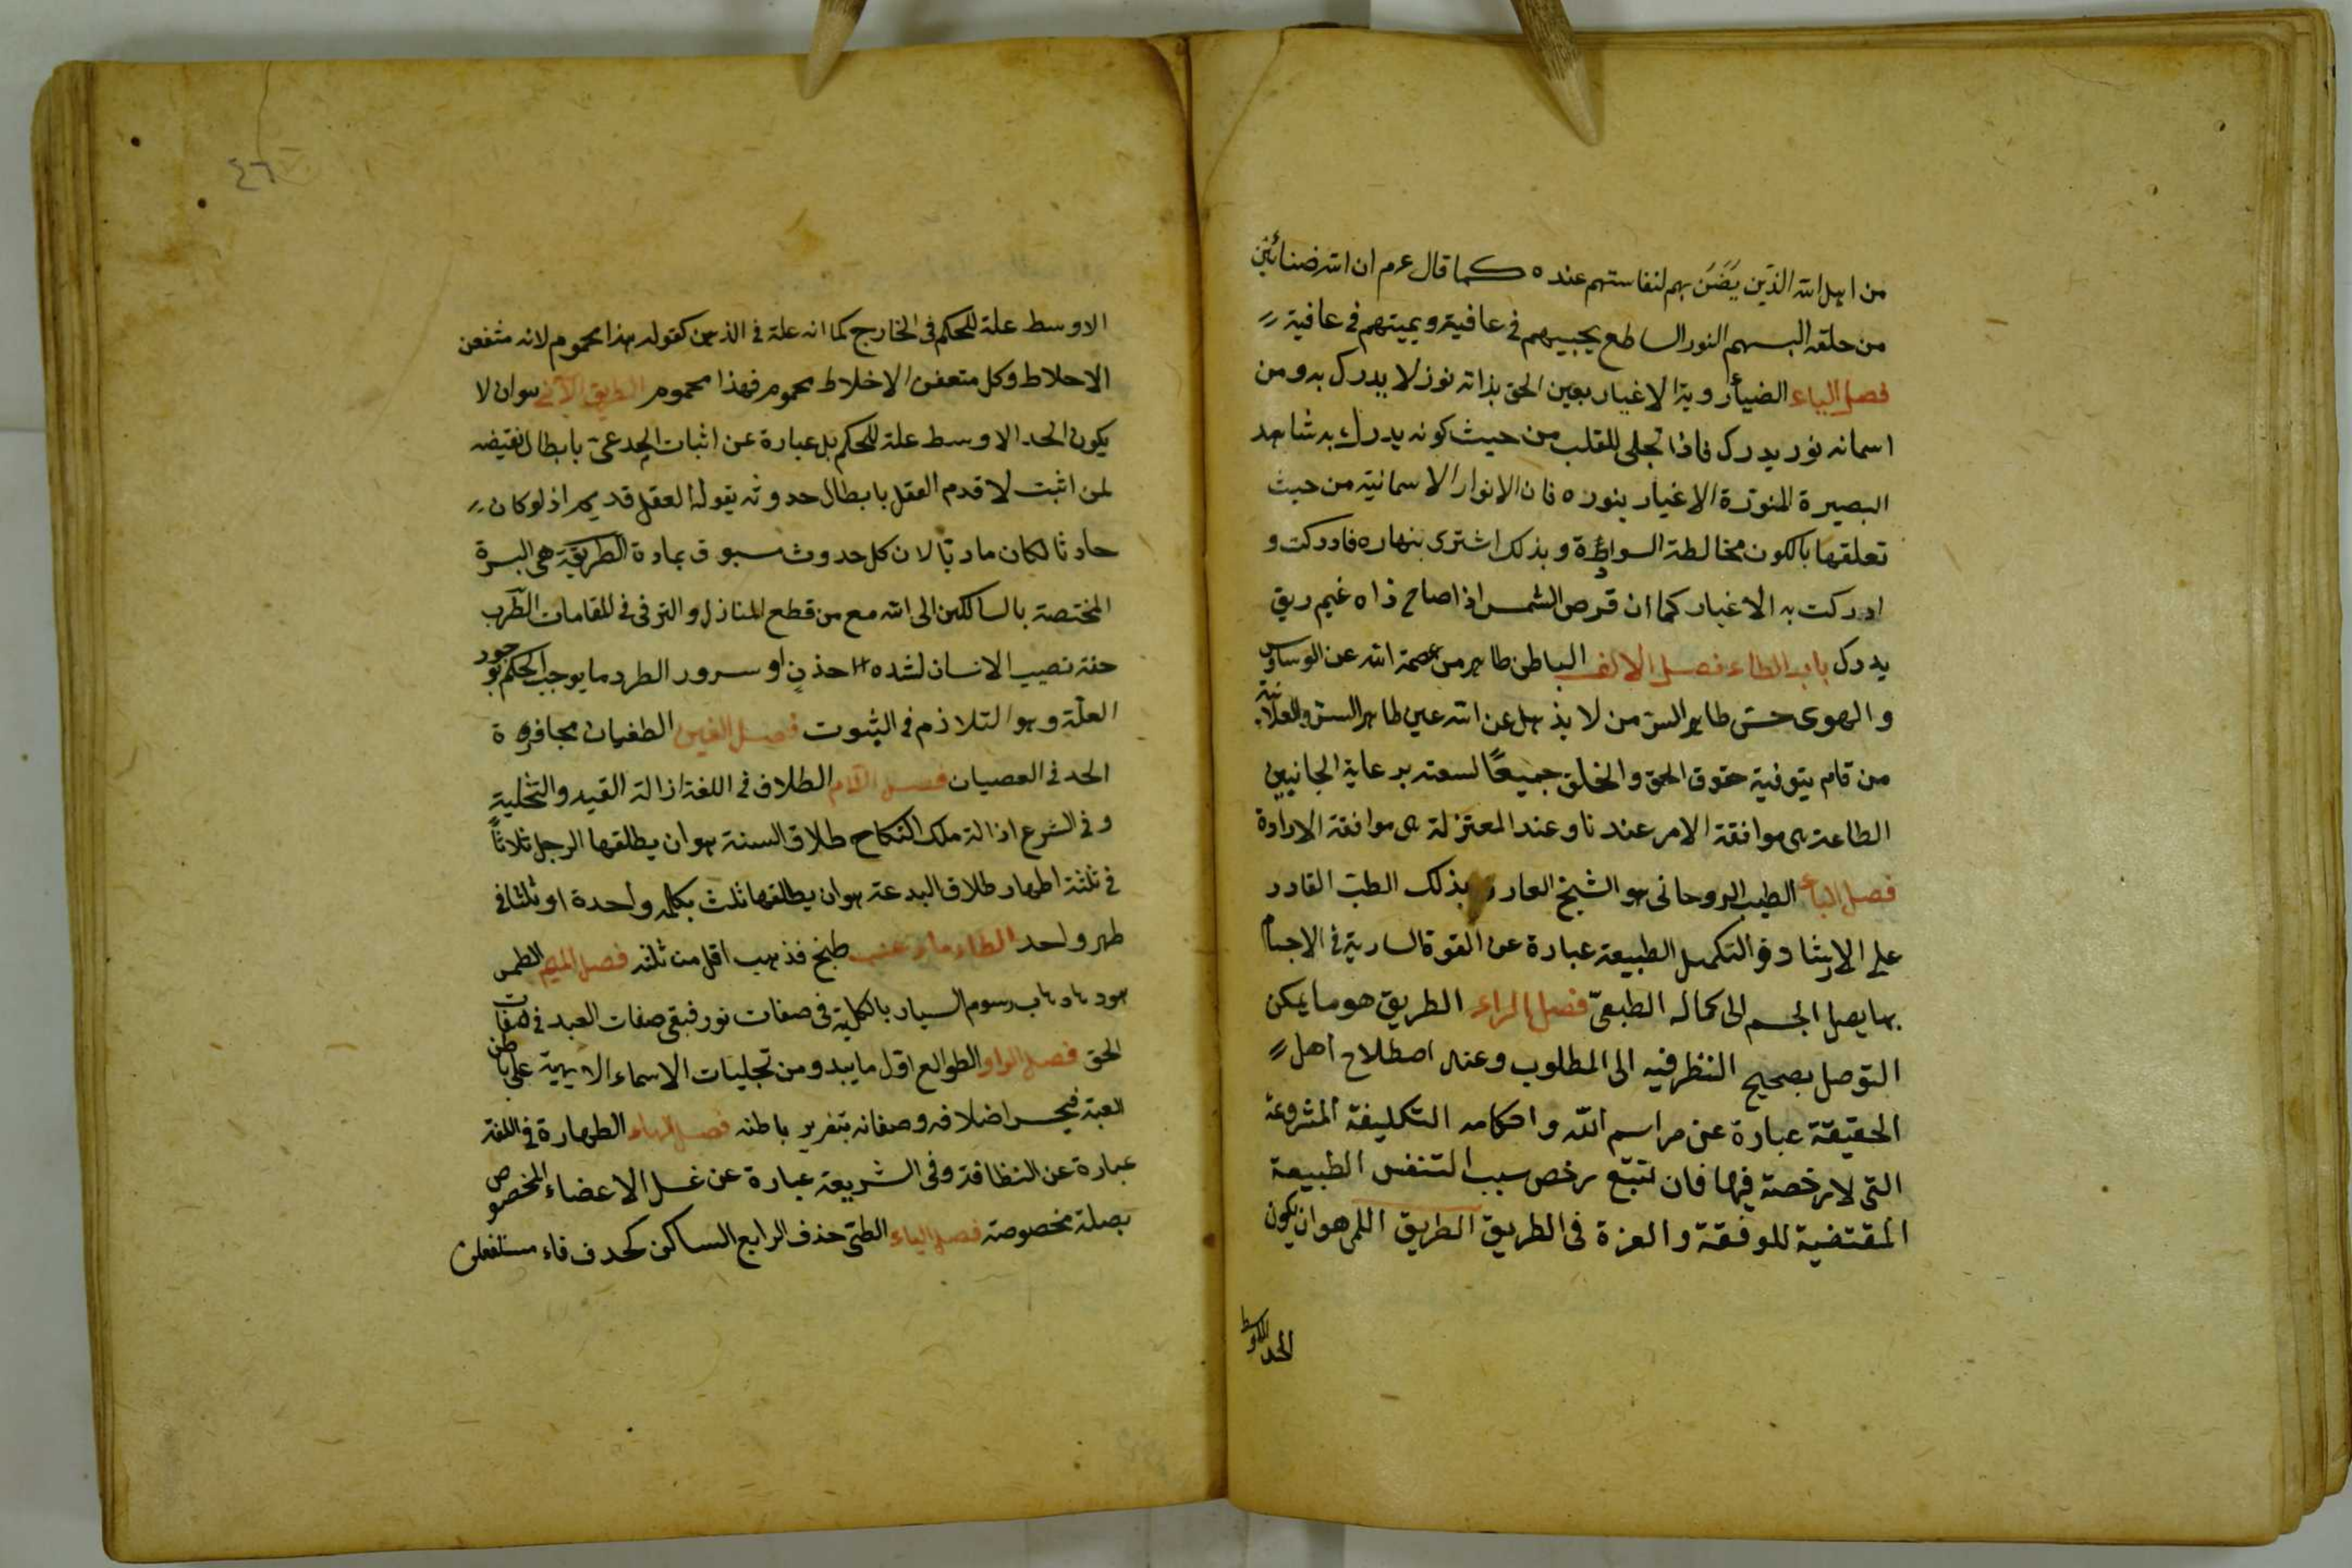 من اهل الله الذين يَضَنَ بهم لنفاستهم عنده كما قال عم ان الله ضنائين
من خلقه البسهم النور الساطع يحييهم في عافية ويميتهم في عافية
فصل الياء الضياء روية الاغيار بعين الحق بذاته نوز لا يدرك به ومن
اسمائه نور يدرك فاذا تجلى للقلب من حيث كونه يدرك به شاهد
البصيرة المنوّرة الاغيار بنوره فان الانوار الاسمائية من حيث
تعلقها بالكون مخالطة السواطرة وبذلك اشترى بنهاره فادركت و
ادركت به الاغيار كما ان قرص الشمس اذا صاح ذاه غيم ريق
يدرك باب الطاء فصل الالف الباطن طاهر من عصمة الله عن الوساوس
والهوى حتى طاهر السرّ من لا يذهل عن الله عين طاهر السرّ والعلانية
من قام بتوفية حقوق الحق والخلق جميعًا لسعته برعاية الجانبين
الطاعة هى موافقة الامر عندنا وعند المعتزلة هى موافقة الارادة
فصل الباء الطيب الروحانى هو الشيخ العارف بذلك الطبّ القادر
على الارشاد والتكميل الطبيعة عبارة عن القوة السارية في الاجسام
بها يصل الجسم الى كماله الطبعىّ فصل الراء الطريق هو ما يمكن
التوصل بصحيح النظر فيه الى المطلوب وعند اصطلاح اهل
الحقيقة عبارة عن مراسم اللّه واحكامه التكليفة المشروعة
التى لا رخصة فيها فان تتبّع رخص سبب التنفس الطبيعة
المقتضية للوفقة والعزة فى الطريق الطريق اللمى هو ان يكون
الحد الاوسط
٤٦
الاوسط علة للحكم فى الخارج كما انه علة في الذهن كقوله هذا محموم لانه متعفن
الاخلاط وكل متعفن الاخلاط محموم فهذا محموم الطريق الآنى هو ان لا
يكون الحد الاوسط علة للحكم بل عبارة عن اثبات المدعى بابطال نقيضه
لمن اثبت لا قدم العقل بابطال حدوثه يقوله العقل قديم اذ لو كان
حادثا لكان ماديّا لان كل حدوث سبوق بمادة الطريقة هى السيرة
المختصة بالسالكين الى الله مع من قطع المنازل والترقى في المقامات الطّرب
خفة تصيب الانسان لشدة حذن او سرور الطرد ما يوجب الحكم بوجود
العلّة وهو التلازم في الثبوت فصل الغين الطغيان مجافزة
الحد في العصيان فصل اللام الطلاق في اللغة ازالة القيد والتخلية
وفي الشرع ازالة ملك النكاح طلاق السنة هو ان يطلقها الرجل ثلاثاً
في ثلثة اطهار طلاق البدعة هو ان يطلقها ثلث بكلمه واحدة او ثلثا في
طهر واحد الطلاء ماء عنب طبخ فذهب اقل من ثلثه فصل الميم الطمس
هود هاد هاب رسوم السيار بالكلية في صفات نور فبقى صفات العبد في صفات
الحق فصل الواو الطوالع اوّل ما يبدو من تجليات الاسماء الالهية على باطن
العبد فيحسر اخلافه وصفاته بتفرير باطنه فصل الهاء الطهارة في اللغة
عبارة عن النظافة وفى الشريعة عبارة عن غسل الاعضاء المخصوص
بصلة مخصوصة فصل الياء الطىّ حذف الرابع الساكن كحدف فاء مستفعلن